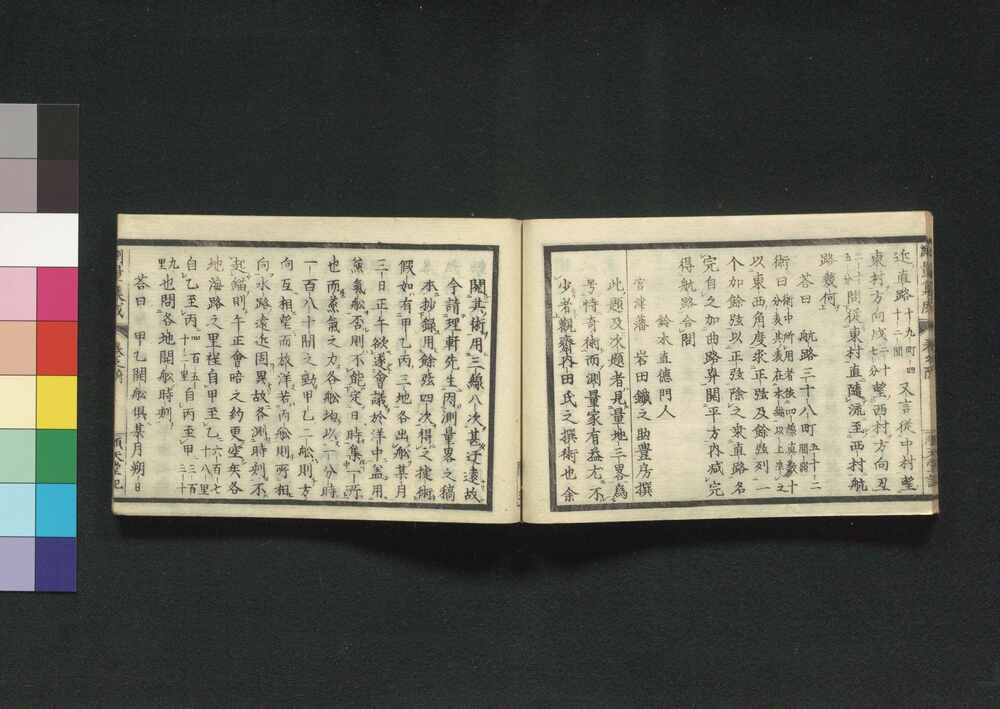 近直路十九町四十二間又言從中村望
東村方向戌二十七分望西村方向丑
二十五分間從東村直隨流至西村航
路幾何
答曰 航路三十八町五十二間弱
術曰
以東西角度求正弦及餘弦列一
个加餘弦以正弦除之乘直路名
完自之加曲路冪開平方内減完
得航路合問
鈴木直德門人
宮津藩 岩田鐵之助豊房撰
此題及次題者見量地三畧爲
号特奇術而測量家有益尤不
少者觀齋内田氏之撰術也余
閲其術用三線八次甚迂遠故
今請理軒先生内測量畧之稿
本抄錄用餘弦四次得之捷術
假如有甲乙丙三地各出舩某月
三日正午欲遂會議於洋中蓋用
蒸氣舩否則不能定日時集所
也而蒸氣之力各舩均以一分時
一百八十間之動甲乙二舩則方
向互相望而放洋若丙舩則所相
向水路遠近因異故各測時刻不
起錨則午正會晤之約更空矣各
地海路之里程自甲至乙六百七十八里
自乙至丙四百五五十二里自丙至甲三百三十
九里也問各地開舩時刻
答曰 甲乙開舩俱某月朔日